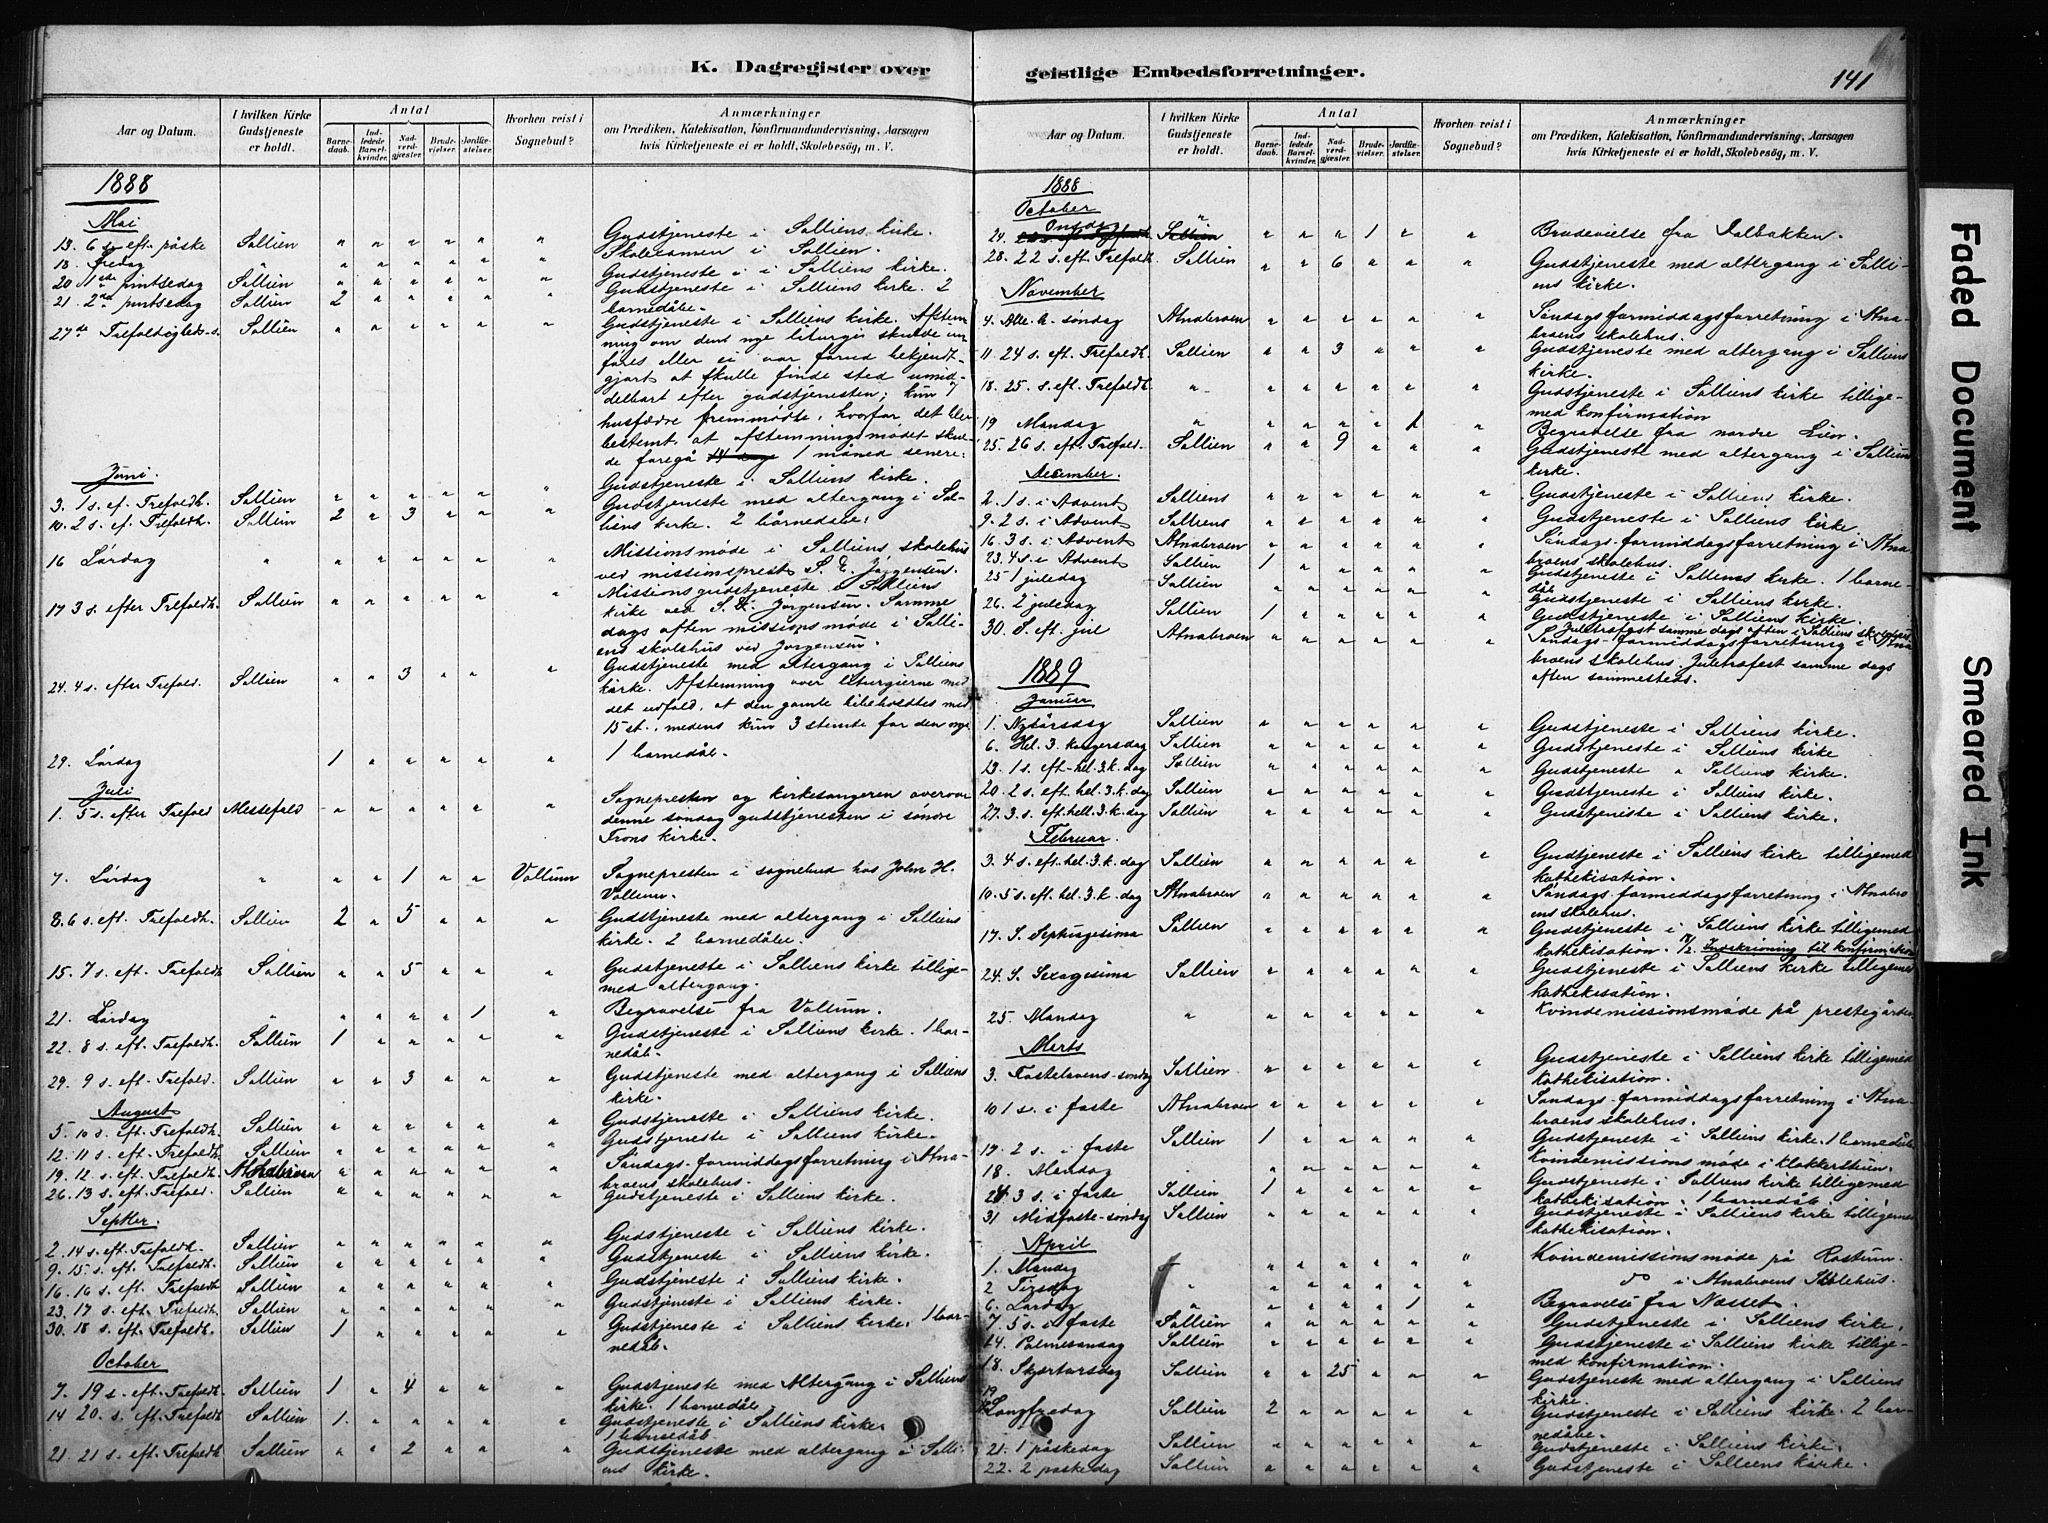 K. Dagregister over
Aar og Datum.
I hvilken Kirke Gudstjeneste er holdt.
Antal
Barnedaab.
Indledede Barselkvinder.
Nadverdgjæster.
Brudevielser.
Jordfæstelser.
Hvorhen reist i Sognebud?
Anmærkninger
om Prædiken, Katekisation, Konfirmandundervisning, Aarsagen
hvis Kirketjeneste ei er holdt, Skolebesög, m. V.
1888
Mai
13. 6 s. eft. påske Sollien " " " " " " Gudstjeneste i Solliens kirke.
18. fredag " " " " " " " Skolexamen i Sollien.
20 1ste pintsedag Sollien " " " " " " Gudstjeneste i Solliens kirke.
21. 2nd pintsedag Sollien 2 " " " " " Gudstjeneste i Solliens kirke. 2
barnedåbe.
27de Trefoldigheds-s. Sollien " " " " " " Gudstjeneste i Solliens kirke. Afstem
ning om den nye liturgi skulde ind
føres eller ei var forud bekjendt-
gjort at skulle finde sted umid-
delbart efter gudstjenesten; kun 7
husfædre fremmødte, hvorfor det blev
bestemt, at afstemningsmødet skul-
de foregå 14 dage 1 måned senere.
Juni
3. 1 s. ef. Trefoldh. Sollien " " " " " " Gudstjeneste i Solliens kirke.
10. 2 s. ef. Trefoldh. Sollien 2 " 3 " " " Gudstjeneste med altergang i Sol-
liens kirke. 2 barnedåbe.
16 Lördag " " " " " " " Missionsmøde i Solliens skolehus
ved missionsprest S. E. Jørgensen.
17 3 s. efter Trefoldh. Sollien " " " " " " Missionsgudstjeneste i Solliens
kirke ved S. E. Jørgensen. Samme
dags aften missionsmøde i Solli-
ens skolehus ved Jørgensen.
24. 4 s. efter Trefold. Sollien " " 3 " " " Gudstjeneste med altergang i Solliens
kirke. Afstemning over liturgierne med
det udfald, at den gamle bibeholdtes med
15 st., medens kun 3 stemte for den nye
29. Lördag 1 " " " " " 1 barnedåb.
Juli
1. 5 s. efter Trefold Messefald " " " " " Sognepresten og kirkesangeren overvar
denne søndag gudstjenesten i søndre
Frons kirke.
7. Lördag " " " 1 " " Vollum Sognepresten i sognebud hos John H.
Vollum.
8. 6 s. eft. Trefoldh. Sollien 2 " 5 " " " Gudstjeneste med altergang i Solliens
kirke. 2 barnedåbe.
15. 7 s. eft. Trefoldh Sollien " " 5 " " " Gudstjeneste i Solliens kirke tillige-
med altergang.
21. Lördag " " " " " 1 " Begravelse fra Vollum.
22. 8 s. eft. Trefoldh. Sollien 1 " " " " " Gudstjeneste i Solliens kirke. 1 bar-
nedåb.
29. 9 s. eft. Trefold. Sollien " " 3 " " " Gudstjeneste med altergang i Solliens
kirke.
August
5. 10 s. eft. Trefoldh. Sollien " " " " " " Gudstjeneste i Solliens kirke.
12. 11 s. eft. Trefoldh. Sollien " " " " " " Gudstjeneste i Solliens kirke.
19. 12 s. eft. Trefoldh. Atnabroen " " " " " " Søndags-formiddagsforretning i Atna-
broens skolehus.
26. 13 s. eft. Trefold. Sollien " " " " " " Gudstjeneste i Solliens kirke.
Septbr.
2. 14 s. eft. Trefoldh. Sollien " " " " " " Gudstjeneste i Solliens kirke.
9. 15 s. eft. Trefoldh. Sollien " " " " " " Gudstjeneste i Solliens kirke.
16. 16 s. eft. Trefoldh. Sollien " " " " " " Gudstjeneste i Solliens kirke.
23. 17 s. eft. Trefoldh. Sollien " " " " " " Gudstjeneste i Solliens kirke.
30. 18 s. eft. Trefoldh. Sollien 1 " " " " " Gudstjeneste i Solliens kirke. 1 bar-
nedåb.
October
7. 19 s. eft. Trefoldh. Sollien 1 " 4 " " " Gudstjeneste med Altergang i Solliens
kirke. 1 barnedåb.
14 20. s. eft. Trefoldh. Sollien 1. " " " " " Gudstjeneste i Solliens kirke.
1 barnedåb.
21. 21 s. eft. Trefoldh Sollien " " 2 " " " Gudstjeneste med altergang i Solli-
ens kirke.
geistlige Embedsforretninger.
141
Aar og Datum.
I hvilken Kirke Gudstjeneste er holdt.
Antal
Barnedaab.
Indledede Barselkvinder.
Nadverdgjæster.
Brudevielser.
Jordfæstelser.
Hvorhen reist i Sognebud?
Anmærkninger
om Prædiken, Katekisation, Konfirmandundervisning, Aarsagen
hvis Kirketjeneste ei er holdt, Skolebesög, m. V.
1888
October
24. Onsdag " " " " 1 " " Brudevielse fra Dalbakken.
28. 22 s. eft. Trefoldh. Sollien " " 6 " " " Gudstjeneste med altergang i Solli-
ens kirke.
November
4. Alle h. søndag Atnabroen " " " " " " Søndags formiddagsforretning i Atna-
broens skolehus.
11. 24 s. eft. Trefoldh. Sollien " " 3 " " " Gudstjeneste med altergang i Solliens
kirke.
18. 25. s. eft. Trefoldh. " " " " " " " Gudstjeneste i Solliens kirke tillige-
med konfirmation
19 Mandag " " " " " 1 " Begravelse fra nordre Lien.
25. 26 s. eft. Trefold. Sollien " " 9 " " " Gudstjeneste med altergang i Solliens
kirke.
December.
2. 1 s. i Advent Solliens " " " " " " Gudstjeneste i Solliens kirke.
9. 2 s. i Advent Solliens " " " " " " Gudstjeneste i Solliens kirke.
16. 3 s. i Advent Atnabroen " " " " " " Søndags-formiddagsforretning i Atna
broens skolehus.
23. 4 s. i Advent Sollien 1 " " " " " Gudstjeneste i Solliens kirke. 1 barne-
dåb
25 1 juledag Sollien " " " " " " Gudstjeneste i Solliens kirke.
26. 2 juledag Sollien 1 " " " " " Gudstjeneste i Solliens kirke.
Juletræfest samme dags aften i Solliens skolehus
30. S. eft. jul Atnabroen " " " " " " Søndags-formiddagsforretning i Atna
broens skolehus. Juletræfest samme dags
aften sammesteds.
1889
Januar
1. Nytårsdag Sollien " " " " " " Gudstjeneste i Solliens kirke.
6. Hel. 3. kongersdag Sollien " " " " " " Gudstjeneste i Solliens kirke
13. 1 s. eft. hel. 3. k. dag Sollien " " " " " " Gudstjeneste i Solliens kirke.
20. 2 s. eft. hel. 3. k. dag Sollien " " " " " " Gudstjeneste i Solliens kirke.
27. 3. s. eft. hell. 3. k. dag Sollien " " " " " " Gudstjeneste i Solliens kirke.
Februar
3. 4 s. eft. hel. 3. k. dag Sollien " " " " " " Gudtjeneste i Solliens kirke tilligemed
kathekisation.
10. 5 s. eft. hel. 3. k. dag Atnabroen " " " " " " Søndags formiddagsforretning i Atnabro
ens skolehus.
17. S. Septuagesima Sollien " " " " " " Gudstjeneste i Solliens kirke tilligemed
kathekisation. 17/2. Indskrivning til konfirmation
24. S. Sexagesima Sollien " " " " " " Gudstjeneste i Solliens kirke tilligemed
kathekisation.
25. Mandag " " " " " " " Kvindemissionsmøde på prestegården
Marts
3. Fastelavens-søndag Sollien " " " " " " Gudstjeneste i Solliens kirke tilligemed
kathekisation.
10 1 s. i faste Atnabroen " " " " " " Søndags-formiddagsforretning i Atna-
broens skolehus.
17. 2 s. i faste Sollien 1 " " " " " Gudstjeneste i Solliens kirke. 1 barnedåb
18. Mandag " " " " " " " Kvindemissionsmøde i Klokkerstuen.
24 3 s. i faste Sollien 1 " " " " " Gudstjeneste i Solliens kirke tilligemed
kathekisation. 1 barnedåb.
31 Midfaste-søndag Sollien " " " " " " Gudstjeneste i Solliens kirke tilligemed
kathekisation.
April
1. Mandag " " " " " " Kvindemissionsmøde på
2 Tirsdag " " " " " " " do i Atnabroens Skolehus.
6. Lördag " " " " " 1 " Begravelse fra Næsset.
7. 5 s. i faste Sollien " " " " " " Gudstjeneste i Solliens kirke.
14. Palmesøndag Sollien " " " " " " Gudstjeneste i Solliens kirke tillige-
med konfirmation.
18. Skjærtorsdag Sollien " " 25 " " " Gudstjeneste med altergang i Solliens
kirke.
19 Langfredag Sollien 2 " " " " " Gudstjeneste i Solliens kirke. 2 bar-
nedåbe.
21. 1 påskedag Sollien " " " " " " Gudstjeneste i Solliens kirke.
22. 2 påskedag Sollien " " " " " " Gudstjeneste i Solliens kirke.
Faded Document
Smeared Ink